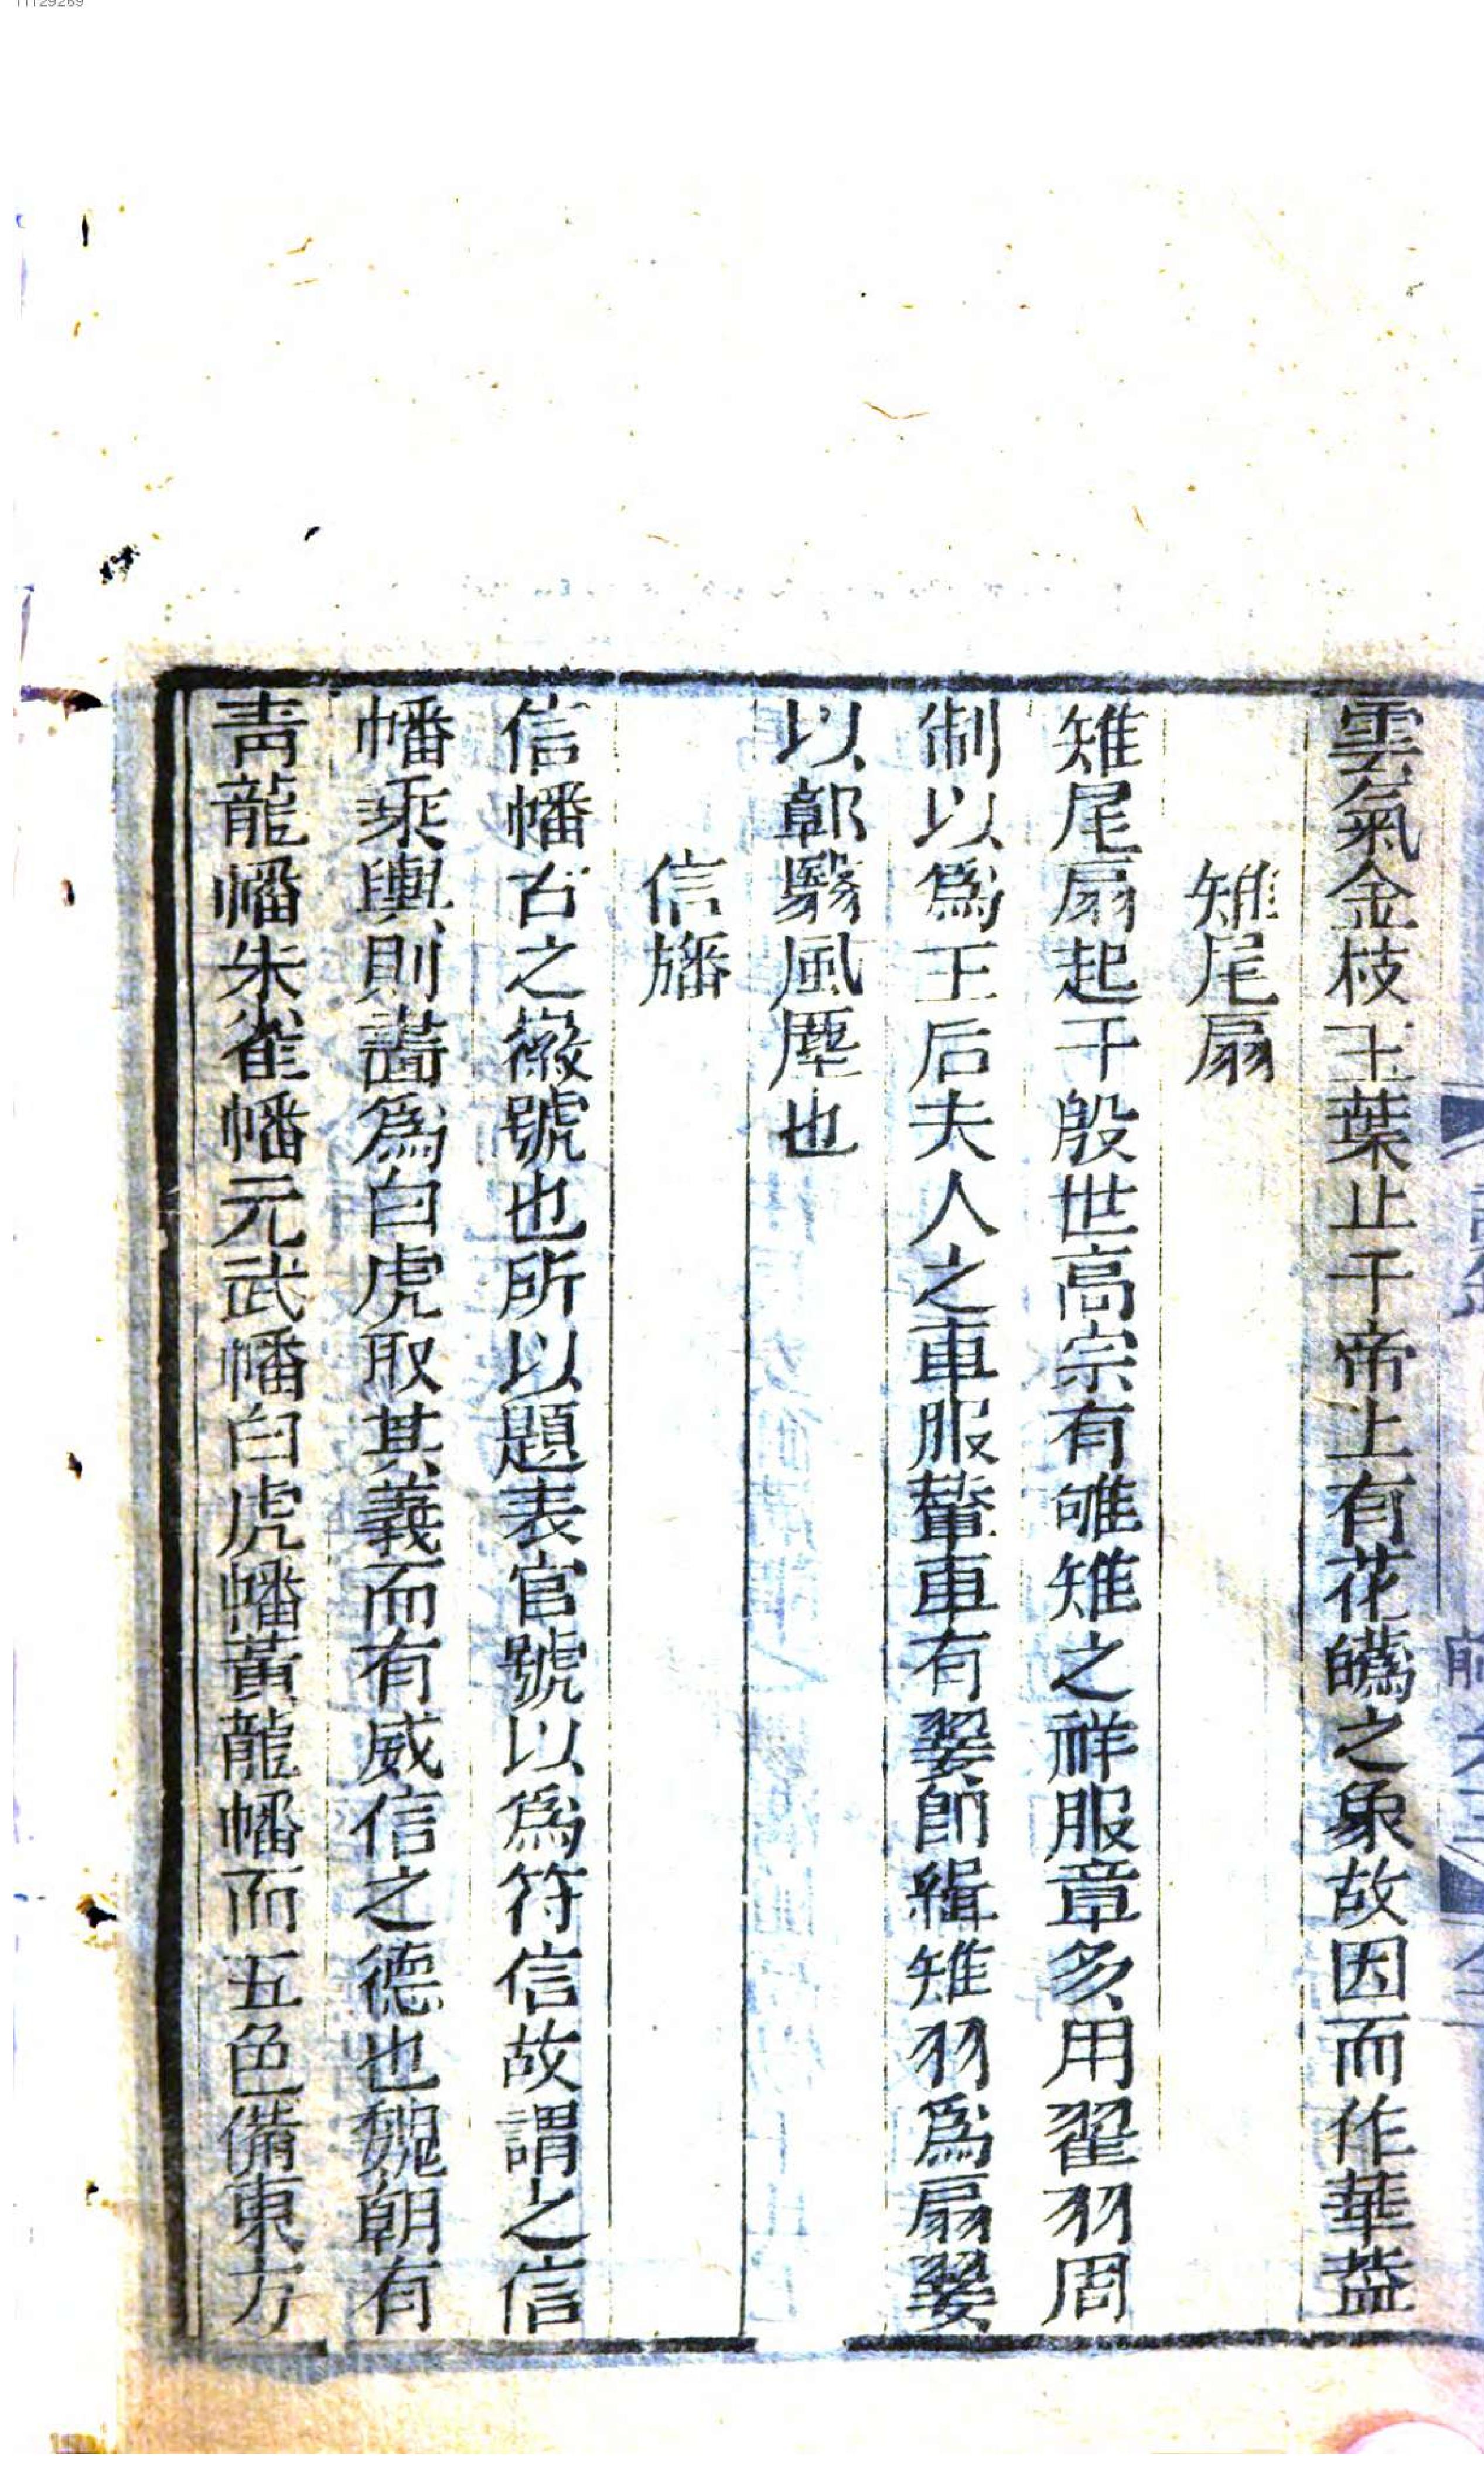 雲氣金枝玉葉止于帝上有花蘤之象故因而作華蓋
雉尾扇
雉尾扇起于殷世高宗有雊雉之祥服章多用翟羽周
制以為王后夫人之車服輦車有翣即緝雉羽為扇翣
以鄣翳風塵也
信旛
信幡古之徽號也所以題表官號以為符信故謂之信
幡乘輿則畵為白虎取其義而有威信之德也魏朝有
青龍幡朱雀幡元武幡白虎幡黃龍幡而五色備東方